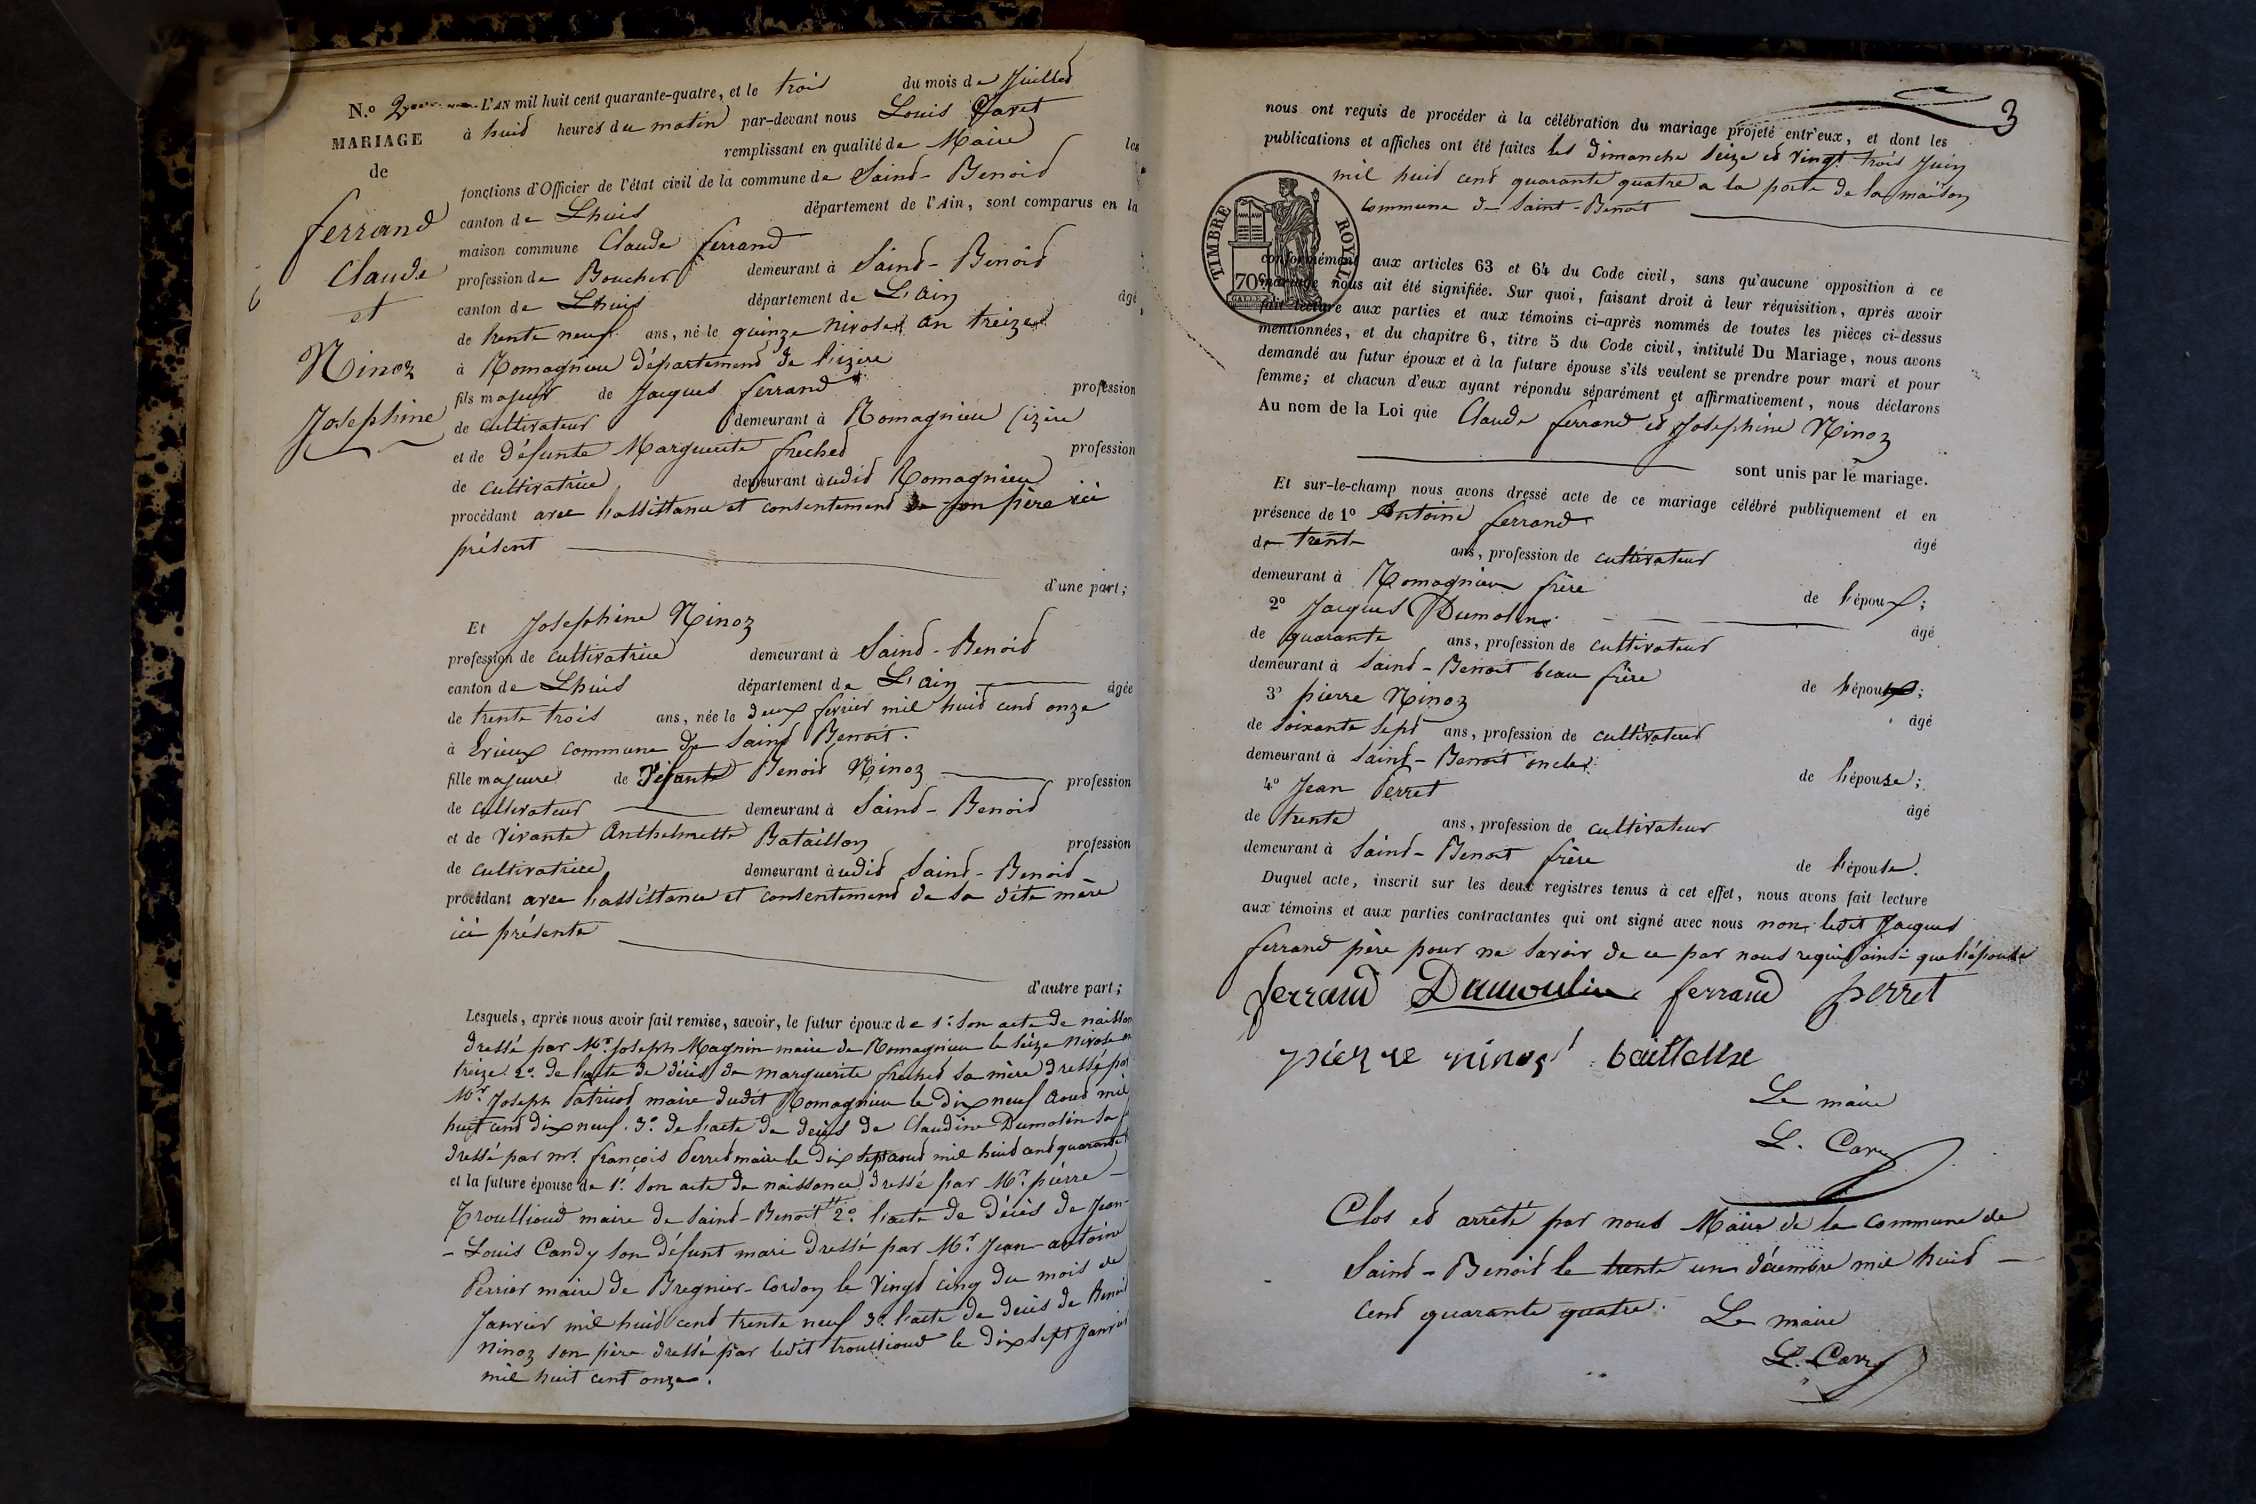 N.º 2
MARIAGE
de
ferrand
Claude
et
Ninoz
Josephine
L'AN mil huit cent quarante-quatre, et le trois du mois de Juillet
à huid heures du matin par-devant nous Louis
remplissant en qualité de Maire les
fonctions d'Officier de l'état civil de la commune de Saind-Benoid
canton de Lhuis département de l'Ain, sont comparus en la
maison commune Claude ferrand
profession de Boucher demeurant à Saind-Benoid
canton de Lhuis département de L'ain âgé
de trente neuf ans, né le quinze nivose an treize
à Romagnieu département de l'izère
fils majeur de Jacques ferrand profession
de cultivateur demeurant à Romagnieu (izère
et de défunte Marguerite freched profession
de cultivatrice demeurant à udid Romagnieu
procédant avec l'assistance et consentement de son père ici
présent
d'une part;
Et Josephine Ninoz
profession de cultivatrice demeurant à Saind-Benoid
canton de Lhuis département de L'ain âgée
de trente trois ans, née le deux fevrier mil huid cend onze
à Evieux commune de Saint Benoit.
fille majeure de Défunt Benoid Ninoz profession
de cultivateur demeurant à Saind-Benoid
et de vivante Anthelmette Bataillon profession
de cultivatrice demeurant à udid Saind-Benoid
procédant avec l'assistance et consentement de sa dite mère
ici présente
d'autre part;
Lesquels, après nous avoir fait remise, savoir, le futur époux de 1º son acte de naissan
dressé par Mr Joseph Magnin maire de Romagnieu le seize nivose an
treize. 2º de l'acte de décès de marguerite freched sa mère dressé par
Mr Joseph Patricot maire dudit Romagnieu le dix neuf aoud mil
huit cend dix neuf. 3º de l'acte de décès de Claudine Dumolin sa
dressé par mr. françois Perred maire le dix sept aoud mil huid cend quarante
et la future épouse de 1º son acte de naissance dressé par Mr pierre
Troullioud maire de Saind-Benoit 2º l'acte de décès de Jean-
-Louis Candy son défunt mari dressé par Mr Jean-antoine
Perrier maire de Bregnier-Cordon le vingt cinq du mois de
Janvier mil huid cend trente neuf 3º l'acte de décès de Benoid
ninoz son père dressé par ledit troullioud le dix sept Janvier
mil huit cent onze.
3
nous ont requis de procéder à la célébration du mariage projeté entr'eux, et dont les
publications et affiches ont été faites les dimanche seize et vingt trois Juin
mil huid cend quarante quatre a la porte de la maison
commune de Saint-Benoit
TIMBRE ROYAL
70c
conformément aux articles 63 et 64 du Code civil, sans qu'aucune opposition à ce
mariage nous ait été signifiée. Sur quoi, faisant droit à leur réquisition, après avoir
fait lecture aux parties et aux témoins ci-après nommés de toutes les pièces ci-dessus
mentionnées, et du chapitre 6, titre 5 du Code civil, intitulé Du Mariage, nous avons
demandé au futur époux et à la future épouse s'ils veulent se prendre pour mari et pour
femme; et chacun d'eux ayant répondu séparément et affirmativement, nous déclarons
Au nom de la Loi que Claude ferrand et Josephine Ninoz
sont unis par le mariage.
Et sur-le-champ nous avons dressé acte de ce mariage célébré publiquement et en
présence de 1º Antoine ferrand âgé
de trente ans, profession de cultivateur
demeurant à Romagnieu frère de l'époux;
2º Jacques Dumolin âgé
de quarante ans, profession de cultivateur
demeurant à Saind-Benoit beau frère de l'époux;
3º pierre Ninoz âgé
de soixante sept ans, profession de cultivateur
demeurant à Saind-Benoit oncle de l'épouse;
4º Jean Perret âgé
de trente ans, profession de cultivateur
demeurant à Saind-Benoit frère de l'épouse.
Duquel acte, inscrit sur les deux registres tenus à cet effet, nous avons fait lecture
aux témoins et aux parties contractantes qui ont signé avec nous non ledit Jacques
ferrand père pour ne savoir de ce par nous requis ainsi que l'épouse
ferrand Dumoulin ferrand perret
pierre ninoz
Le maire
L. Cary
Clos et arrêté par nous Maire de la commune de
Saind-Benoid le trente un décembre mil huid
cend quarante quatre. Le maire
L. Cary